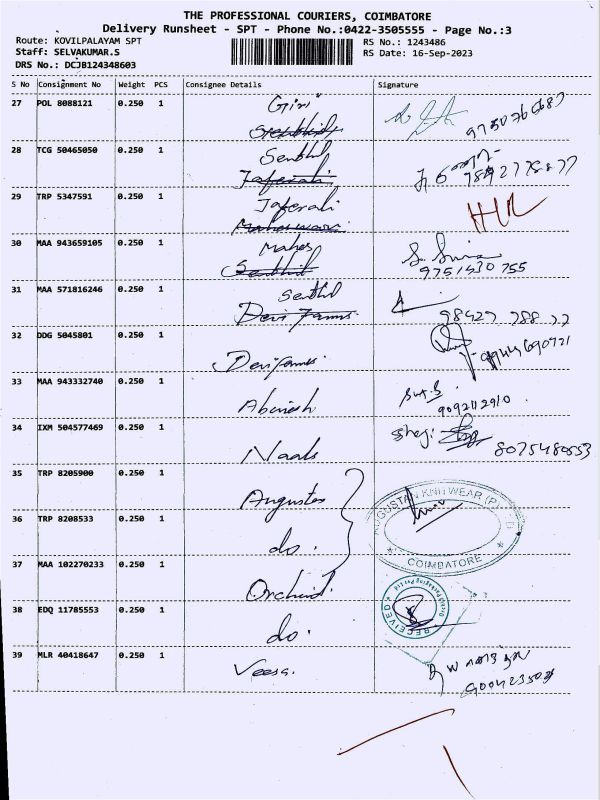 THE PROFESSIONAL COURIERS, COIMBATORE
Delivery Runsheet - SPT - Phone No.:0422-3505555 - Page No.:3
Route: KOVILPALAYAM SPT
RS No.: 1243486
Staff: SELVAKUMAR.S
RS Date: 16-Sep-2023
DRS No.: DCJB124348603
S No Consignment No Weight PCS Consignee Details Signature
27 POL 8088121 0.250 1 Giri
28 TCG 50465050 0.250 1 Senthil
Jaferali
29 TRP 5347591 0.250 1 Jaferali
30 MAA 943659105 0.250 1 Mahes
Senthil
9751430755
31 MAA 571816246 0.250 1 Senthil
Devi Farms
98427 788 77
32 DDG 5045801 0.250 1
Devi Farms
33 MAA 943332740 0.250 1 Abinesh
9092112910
34 IXM 504577469 0.250 1 Naals
Shaji
8075480553
35 TRP 8205900 0.250 1 Augustan
AUGUSTAN KNITWEAR (P) LTD
COIMBATORE
36 TRP 8208533 0.250 1 do.
37 MAA 102270233 0.250 1 Orchid
RECEIVED
38 EDQ 11785553 0.250 1 do.
39 MLR 40418647 0.250 1 Veesa.